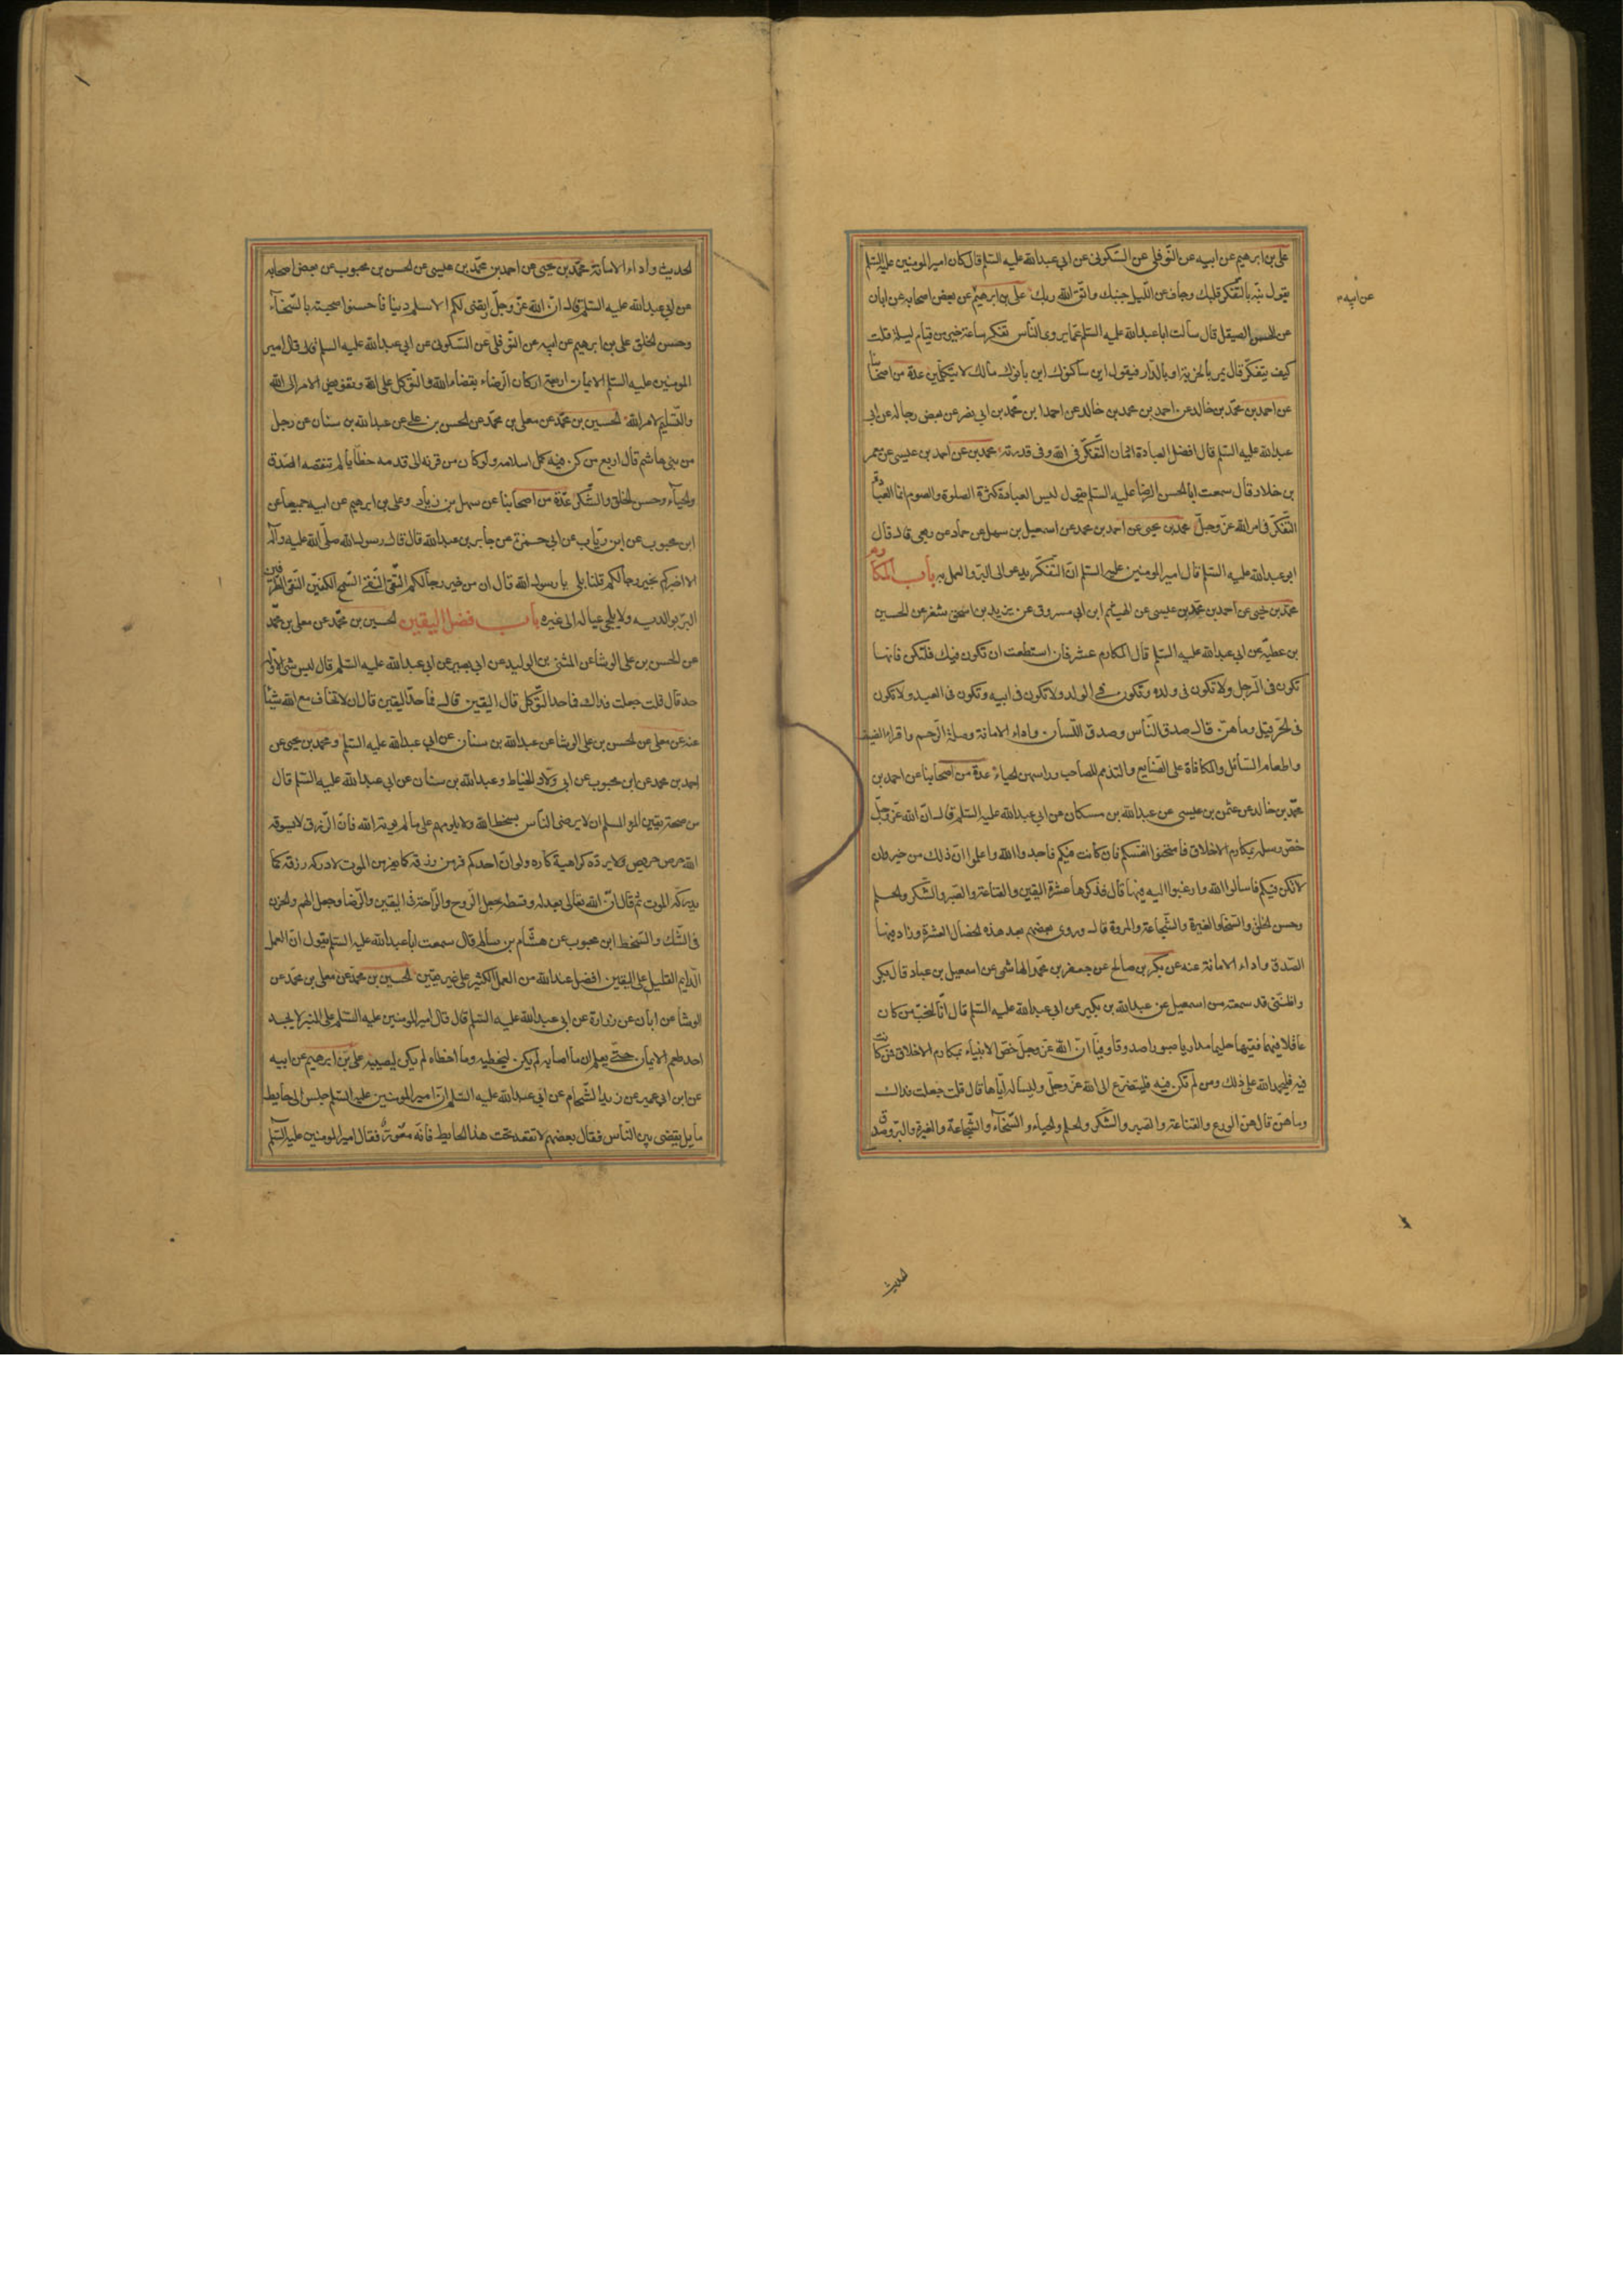 علی بن ابرهیم عن ابیه عن النّوفلی عن السّکونی عن ابی عبدالله علیه السّلم قال کان امیرالمومنین علیه السّلم
یقول نبّه بالتّفکر قلبک وجاف عن اللّیل جنبک واتّق الله ربک علی بن ابرهیم عن بعض اصحابه عن ابان
عن ابیه
عن الحسن الصیقل قال سألت اباعبدالله علیه السّلم عمّا یروی النّاس تفکر ساعة خیر من قیام لیلة قلت
کیف یتفکّر قال یمر بالخربة او بالدّار فیقول این ساکنوک این بانوک مالک لا تتکلّمین عدة من اصحابنا
عن احمد بن محمّد بن خالد عن احمد بن محمد بن خالد عن احمد ابن محمّد بن ابی نصر عن بعض رجاله عن ابی
عبدالله علیه السّلم قال افضل العبادة ادمان التّفکّر فی الله وفی قدرته محمد بن عن احمد بن عیسی عن معمر
بن خلاد قال سمعت اباالحسن الرضا علیه السّلم یقول لیس العبادة کثرة الصلوة والصوم انما العبادة
التّفکّر فی امرالله عزّ وجلّ محمد بن یحیی عن احمد بن محمد عن اسمعیل بن سهل عن حماد عن ربعی قال قال
ابو عبدالله علیه السّلم قال امیرالمومنین علیه السّلم انّ التّفکّر یدعو الی البرّ والعمل به باب المکارم
محمّد بن یحیی عن احمد بن محمّد بن عیسی عن الهیثم ابن ابی مسروق عن یزید بن اسحق شعر عن الحسین
بن عطیّه عن ابی عبدالله علیه السّلم قال المکارم عشر فان استطعت ان تکون فیک فلتکن فانها
تکون فی الرّجل ولا تکون فی ولده وتکون فی الولد ولا تکون فی ابیه وتکون فی العبد ولا تکون
فی الحرّ قیل وما هنّ قال صدق النّاس وصدق اللّسان واداء الامانة وصلة الرّحم واقراء الضیف
واطعام السّائل والمکافاة علی الصّنایع والتذمم للصاحب وراسهن الحیاء عدة من اصحابنا عن احمد بن
محمّد بن خالد عن عثمن بن عیسی عن عبدالله بن مسکان عن ابی عبدالله علیه السّلم قال انّ الله عزّ وجلّ
خصّ رسله بمکارم الاخلاق فامتحنوا انفسکم فان کانت فیکم فاحمدوا الله واعلموا انّ ذلک من خیر وان
لا تکن فیکم فاسالوا الله وارغبوا الیه فیها قال فذکرها عشرة الیقین والقناعة والصّبر والشّکر والحلم
وحسن الخلق والسّخاء والغیرة والشّجاعة والمروة قال وروی بعضهم بعد هذه الخصال العشرة وزاد فیها
الصّدق واداء الامانة عنه عن بکر بن صالح عن جعفر بن محمّد الهاشمی عن اسمعیل بن عباد قال بکر
واظنّنی قد سمعته من اسمعیل عن عبدالله بن بکیر عن ابی عبدالله علیه السّلم قال انّا لنحبّ من کان
عاقلا فهما فقیها حلیما مداریا صبورا صدوقا وفیّا انّ الله عزّ وجلّ خصّ الانبیاء بمکارم الاخلاق فمن کانت
فیه فلیحمدالله علی ذلک ومن لم تکن فیه فلیتضرّع الی الله عزّ وجلّ ولیساله ایّاها قال قلت جعلت فداک
وما هنّ قال هنّ الورع والقناعة والصّبر والشّکر والحلم والحیاء والسّخاء والشّجاعة والغیرة والبرّ وصدق
الحدیث
الحدیث واداء الامانة محمّد بن یحیی عن احمد بن محمّد بن عیسی عن الحسن بن محبوب عن بعض اصحابه
عن ابی عبدالله علیه السّلم قال انّ الله عزّ وجلّ ارتضی لکم الاسلام دینا فاحسنوا صحبته بالسّخاء
وحسن الخلق علی بن ابرهیم عن ابیه عن النّوفلی عن السّکونی عن ابی عبدالله علیه السلم قال قال امیر
المومنین علیه السّلم الایمان اربعة ارکان الرّضاء بقضاء الله والتّوکل علی الله وتفویض الامر الی الله
والتّسلیم لامرالله الحسین بن محمّد عن معلی بن محمّد عن الحسن بن علی عن عبدالله بن سنان عن رجل
من بنی هاشم قال اربع من کن فیه کمل اسلامه ولو کان من قرنه الی قدمه خطایا لم تنقصه الصّدق
والحیاء وحسن الخلق والشّکر عدّة من اصحابنا عن سهل بن زیاد وعلی بن ابرهیم عن ابیه جمیعا عن
ابن محبوب عن ابن ریاب عن ابی حمزة عن جابر بن عبدالله قال قال رسول الله صلّی الله علیه وآله
الا اخبرکم بخیر رجالکم قلنا بلی یا رسول الله قال ان من خیر رجالکم التّقی النّقی السّمح الکفین النّقی الطّرفین
البرّ بوالدیه ولا یلجی عیاله الی غیره باب فضل الیقین الحسین بن محمّد عن معلی بن محمّد
عن الحسن بن علی الوشا عن المثنی بن الولید عن ابی بصیر عن ابی عبدالله علیه السّلم قال لیس شی الا وله
حد قال قلت جعلت فداک فما حد التّوکل قال الیقین قال فما حدّ الیقین قال ان لا تخاف مع الله شیئا
عنه عن معلی عن الحسن بن علی الوشا عن عبدالله بن سنان عن ابی عبدالله علیه السّلم ومحمد بن یحیی عن
احمد بن محمد عن ابن محبوب عن ابی ولاد الحناط وعبدالله بن سنان عن ابی عبدالله علیه السّلم قال
من صحة یقین المرء المسلم ان لا یرضی النّاس بسخط الله ولا یلومهم علی ما لم یوته الله فانّ الرّزق لا یسوقه
الله حرص حریص ولا یردّه کراهیة کاره ولو انّ احدکم فر من رزقه کما یفر من الموت لادرکه رزقه کما
یدرکه الموت ثم قال انّ الله تعالی بعدله وقسطه جعل الرّوح والرّاحة فی الیقین والرّضا وجعل الهم والحزن
فی الشّک والسّخط ابن محبوب عن هشام بن سالم قال سمعت اباعبدالله علیه السّلم یقول انّ العمل
الدّایم القلیل علی الیقین افضل عندالله من العمل الکثیر علی غیر یقین الحسین بن محمّد عن معلی بن محمّد عن
الوشا عن ابان عن زرارة عن ابی عبدالله علیه السّلم قال قال امیرالمومنین علیه السّلم علی المنبر لا یجد
احد طعم الایمان حتّی یعلم ان ما اصابه لم یکن لیخطیه وما اخطاه لم یکن لیصیبه علی بن ابرهیم عن ابیه
عن ابن ابی عمیر عن زید الشّحام عن ابی عبدالله علیه السّلم انّ امیرالمومنین علیه السّلم جلس الی حایط
مایل یقضی بین النّاس فقال بعضهم لا تقعد تحت هذا الحایط فانّه معور فقال امیرالمومنین علیه السّلم